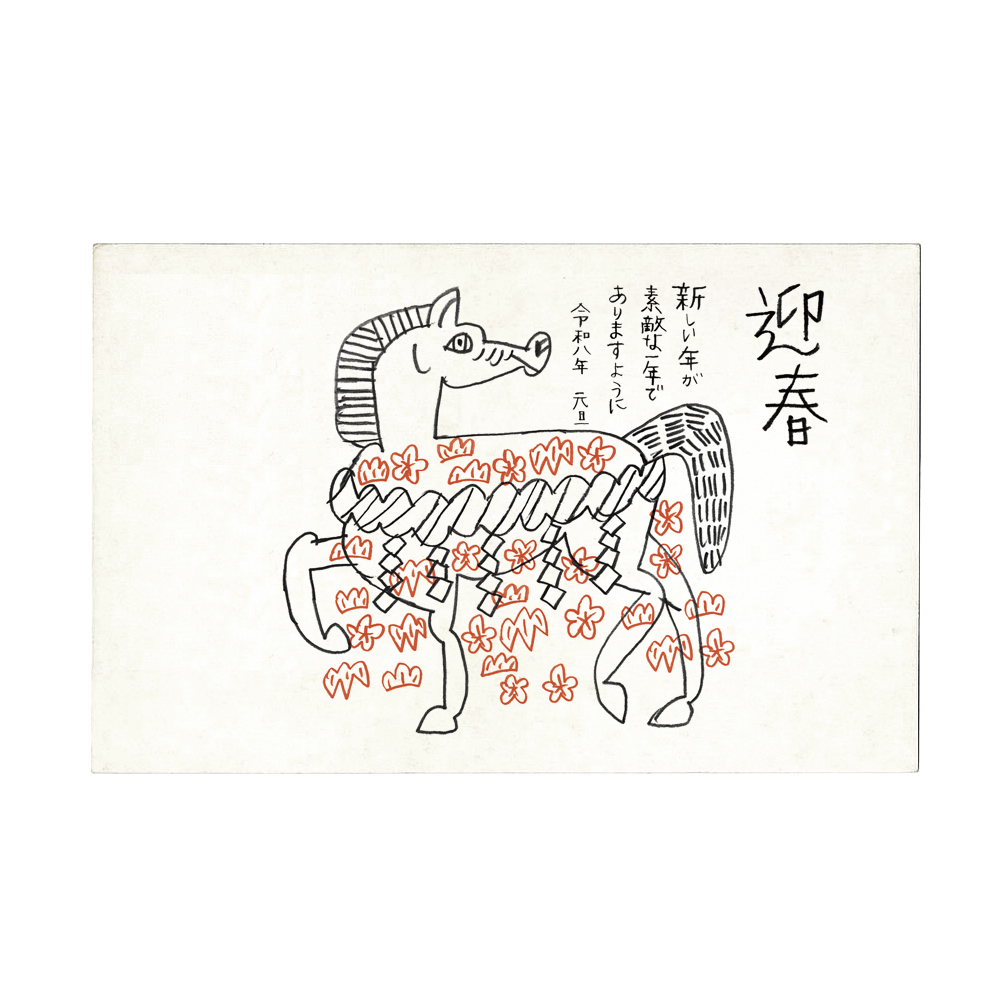 迎春
新しい年が
素敵な一年で
ありますように
令和八年 元旦